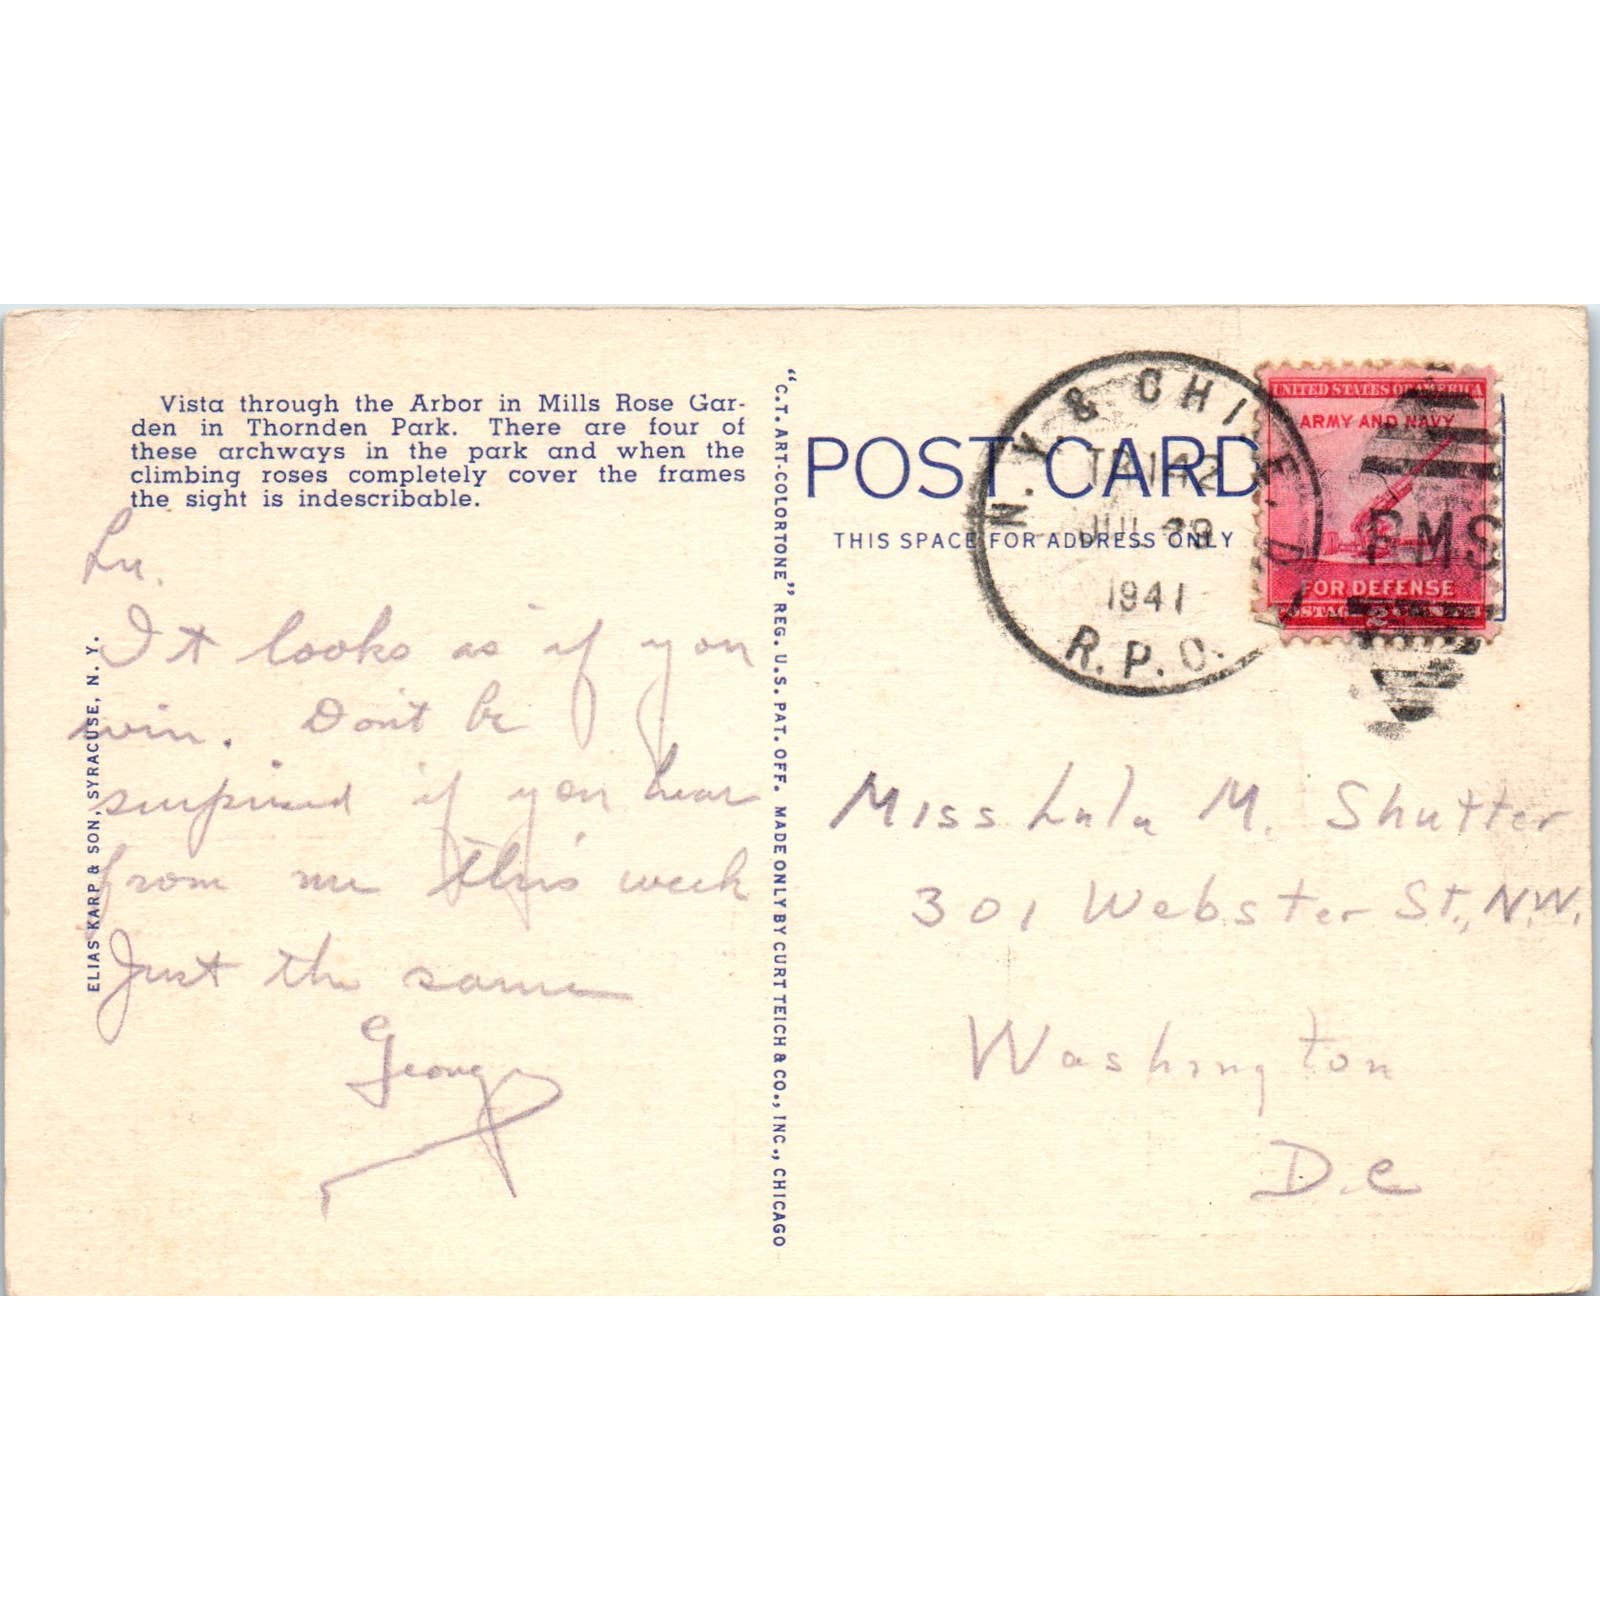 Vista through the Arbor in Mills Rose Gar-
den in Thornden Park. There are four of
these archways in the park and when the
climbing roses completely cover the frames
the sight is indescribable.
Lu.
It looks as if you
win. Don't be
surprised if you hear
from me this week
Just the same
George
ELIAS KARP & SON, SYRACUSE, N. Y.
"C.T. ART-COLORTONE" REG. U.S. PAT. OFF. MADE ONLY BY CURT TEICH & CO., INC., CHICAGO
POST CARD
THIS SPACE FOR ADDRESS ONLY
N.Y. & CHI. E.D.
JUL
1941
R.P.O.
UNITED STATES OF AMERICA
ARMY AND NAVY
RMS
FOR DEFENSE
POSTAGE 2 CENTS
Miss Lulu M. Shutter
301 Webster St., N.W.
Washington
D.C